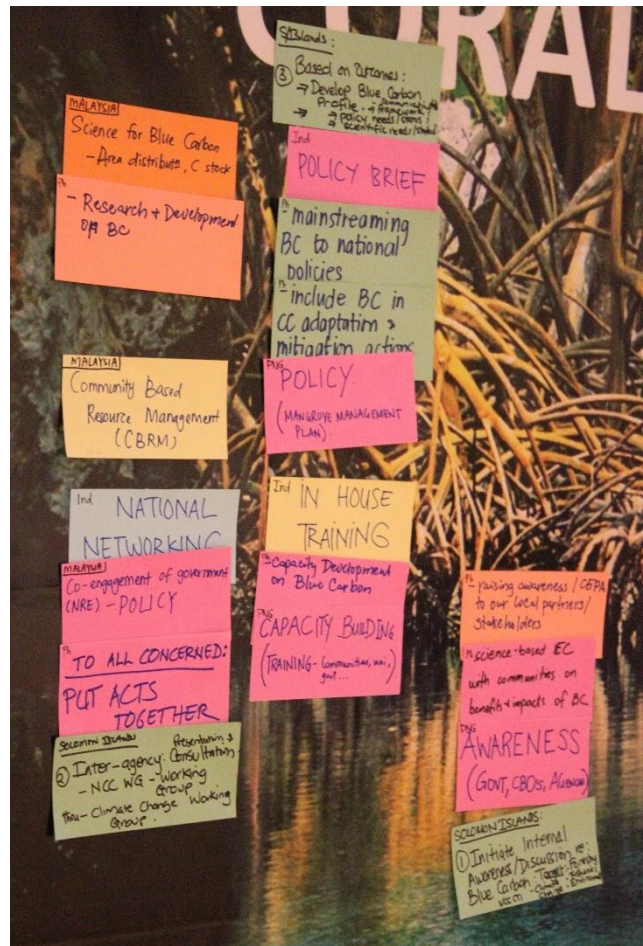 CORAL
MALAYSIA
Science for Blue Carbon
- Area distribute, C stock
Ph
- Research + Development
of BC
MALAYSIA
Community Based
Resource Management
(CBRM)
Ind
NATIONAL
NETWORKING
MALAYSIA
Co-engagement of government
(NRE) - POLICY
Ph
TO ALL CONCERNED:
PUT ACTS
TOGETHER
SOLOMON ISLANDS
② Inter-agency: Presentation &
Consultation
- NCC WG - Working
Group
thru - Climate Change Working
Group.
S/Islands:
③ Based on Outcomes:
→ Develop Blue Carbon
Profile.
→ policy needs/
→ scientific needs/
Ind
POLICY BRIEF
Ph
- mainstreaming
BC to national
policies
Ph
- include BC in
CC adaptation &
mitigation actions
PNG
POLICY
(MANGROVE MANAGEMENT
PLAN).
Ind
IN HOUSE
TRAINING
Ph
- Capacity Development
on Blue Carbon
PNG
CAPACITY BUILDING
(TRAINING - Communities, uni,
govt ...
Ph
- raising awareness / CEPA
to our local partners/
stakeholders
science-based EC
with communities on
benefits + impacts of BC
PNG
AWARENESS
(GOVT, CBOs, AGENCIES)
SOLOMON ISLANDS:
① Initiate Internal
Awareness/Discussion re:
Blue Carbon. Target: